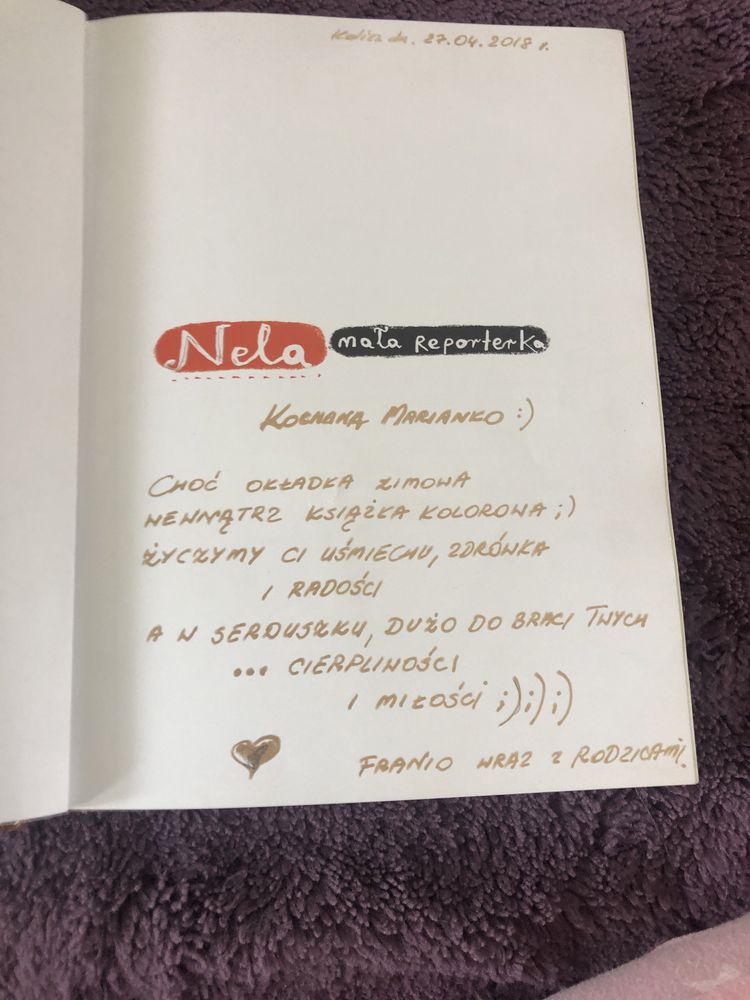 Kalisz dn. 27.04.2018 r.
Nela mała Reporterka
Kochana Marianko :)
Choć okładka zimowa
wewnątrz książka kolorowa ;)
życzymy Ci uśmiechu, zdrówka
i radości
a w serduszku, dużo do braci Twych
... cierpliwości
i miłości ;) ;) ;)
Franio wraz z rodzicami.